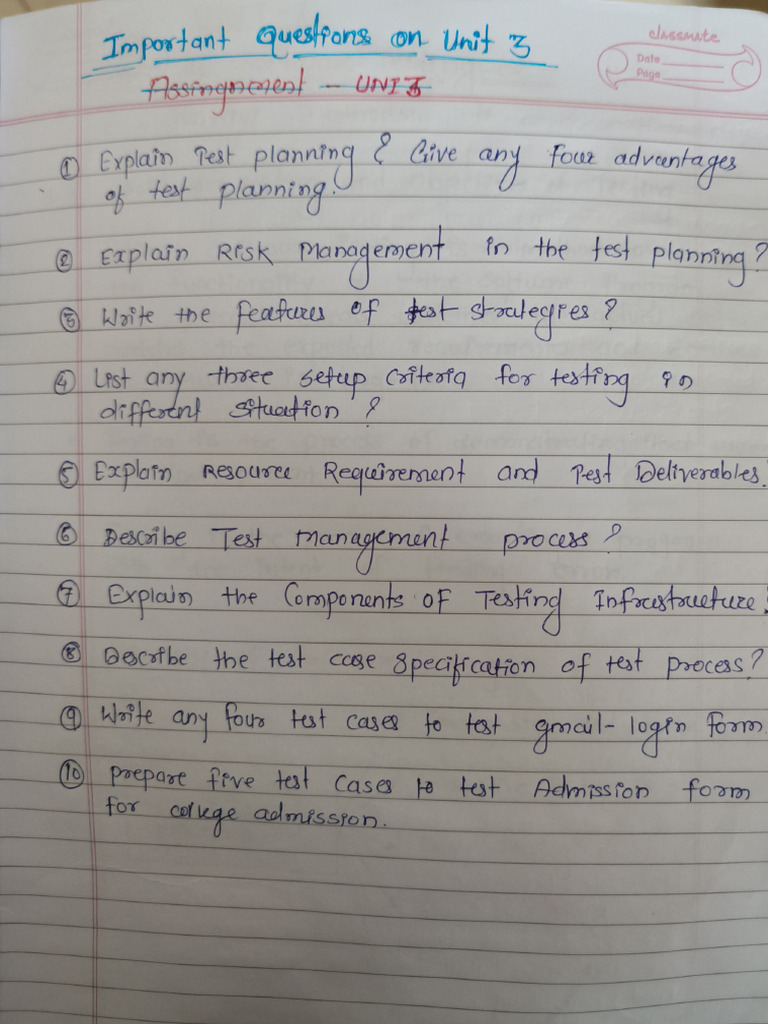 Important Questions on Unit 3
classmate
Assingnement - UNIT 3
Date
Page
① Explain Test planning? Give any four advantages
of test planning.
② Explain Risk Management in the test planning?
③ Write the features of test strategies?
④ List any three setup criteria for testing in
different situation?
⑤ Explain Resource Requirement and Test Deliverables.
⑥ Describe Test management process?
⑦ Explain the Components of Testing Infrastructure.
⑧ Describe the test case specification of test process?
⑨ Write any four test cases to test gmail-login form.
⑩ prepare five test cases to test Admission form
for college admission.